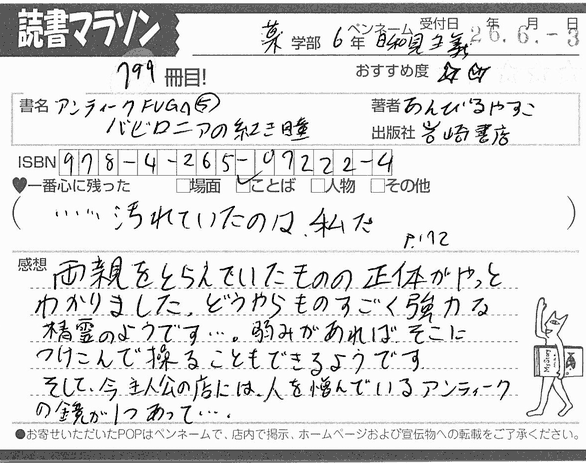 読書マラソン
薬 学部 6年 ペンネーム 日和見主義 受付日 26.6.-3 年 月 日
799 冊目! おすすめ度 ☆☆
書名 アンティークFUGA⑤ 著者 あんびるやすこ
バビロニアの紅き瞳 出版社 岩崎書店
ISBN 978-4-265-07222-4
♥一番心に残った □場面 ☑ことば □人物 □その他
(……汚れていたのは、私だ P.172)
感想 両親をとらんでいたものの正体がやっと
わかりました。どうやらものすごく強力な
精霊のようです…。弱みがあれば、そこに
つけこんで操ることもできるようです
そして、今主人公の店には、人を憎んでいるアンティーク
の鏡が1つあって…。
●お寄せいただいたPOPはペンネームで、店内で掲示、ホームページおよび宣伝物への転載をご了承ください。